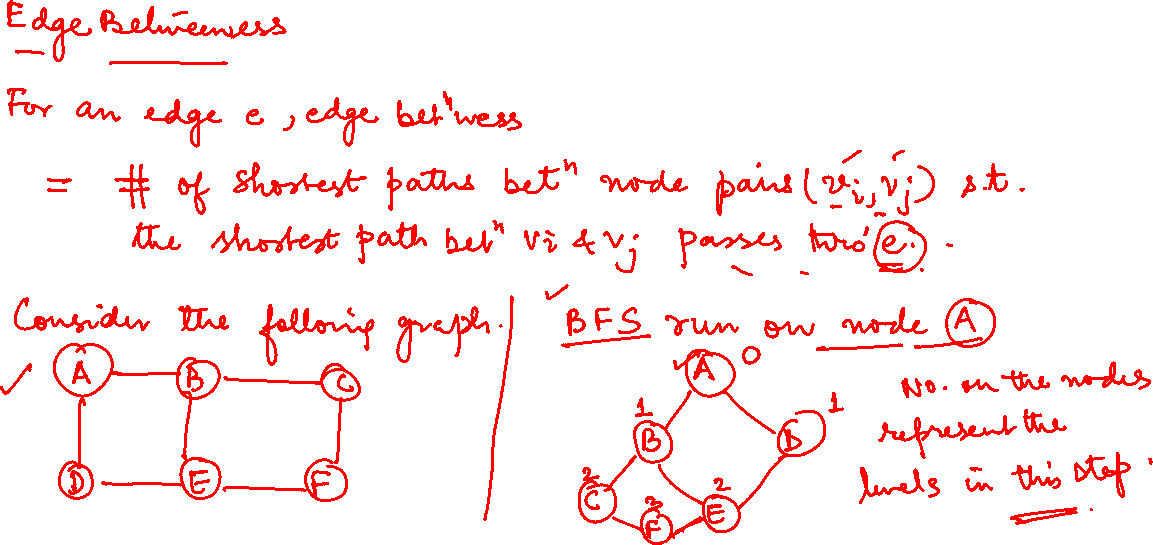 Edge Betweenness
For an edge e, edge betⁿness
= # of shortest paths betⁿ node pairs (vi, vj) s.t.
the shortest path betⁿ vi & vj passes thro' e.
Consider the following graph.
A B C
D E F
BFS run on node A
A 0
1 B D 1
2 C 3 F E 2
No. on the nodes
represent the
levels in this step.